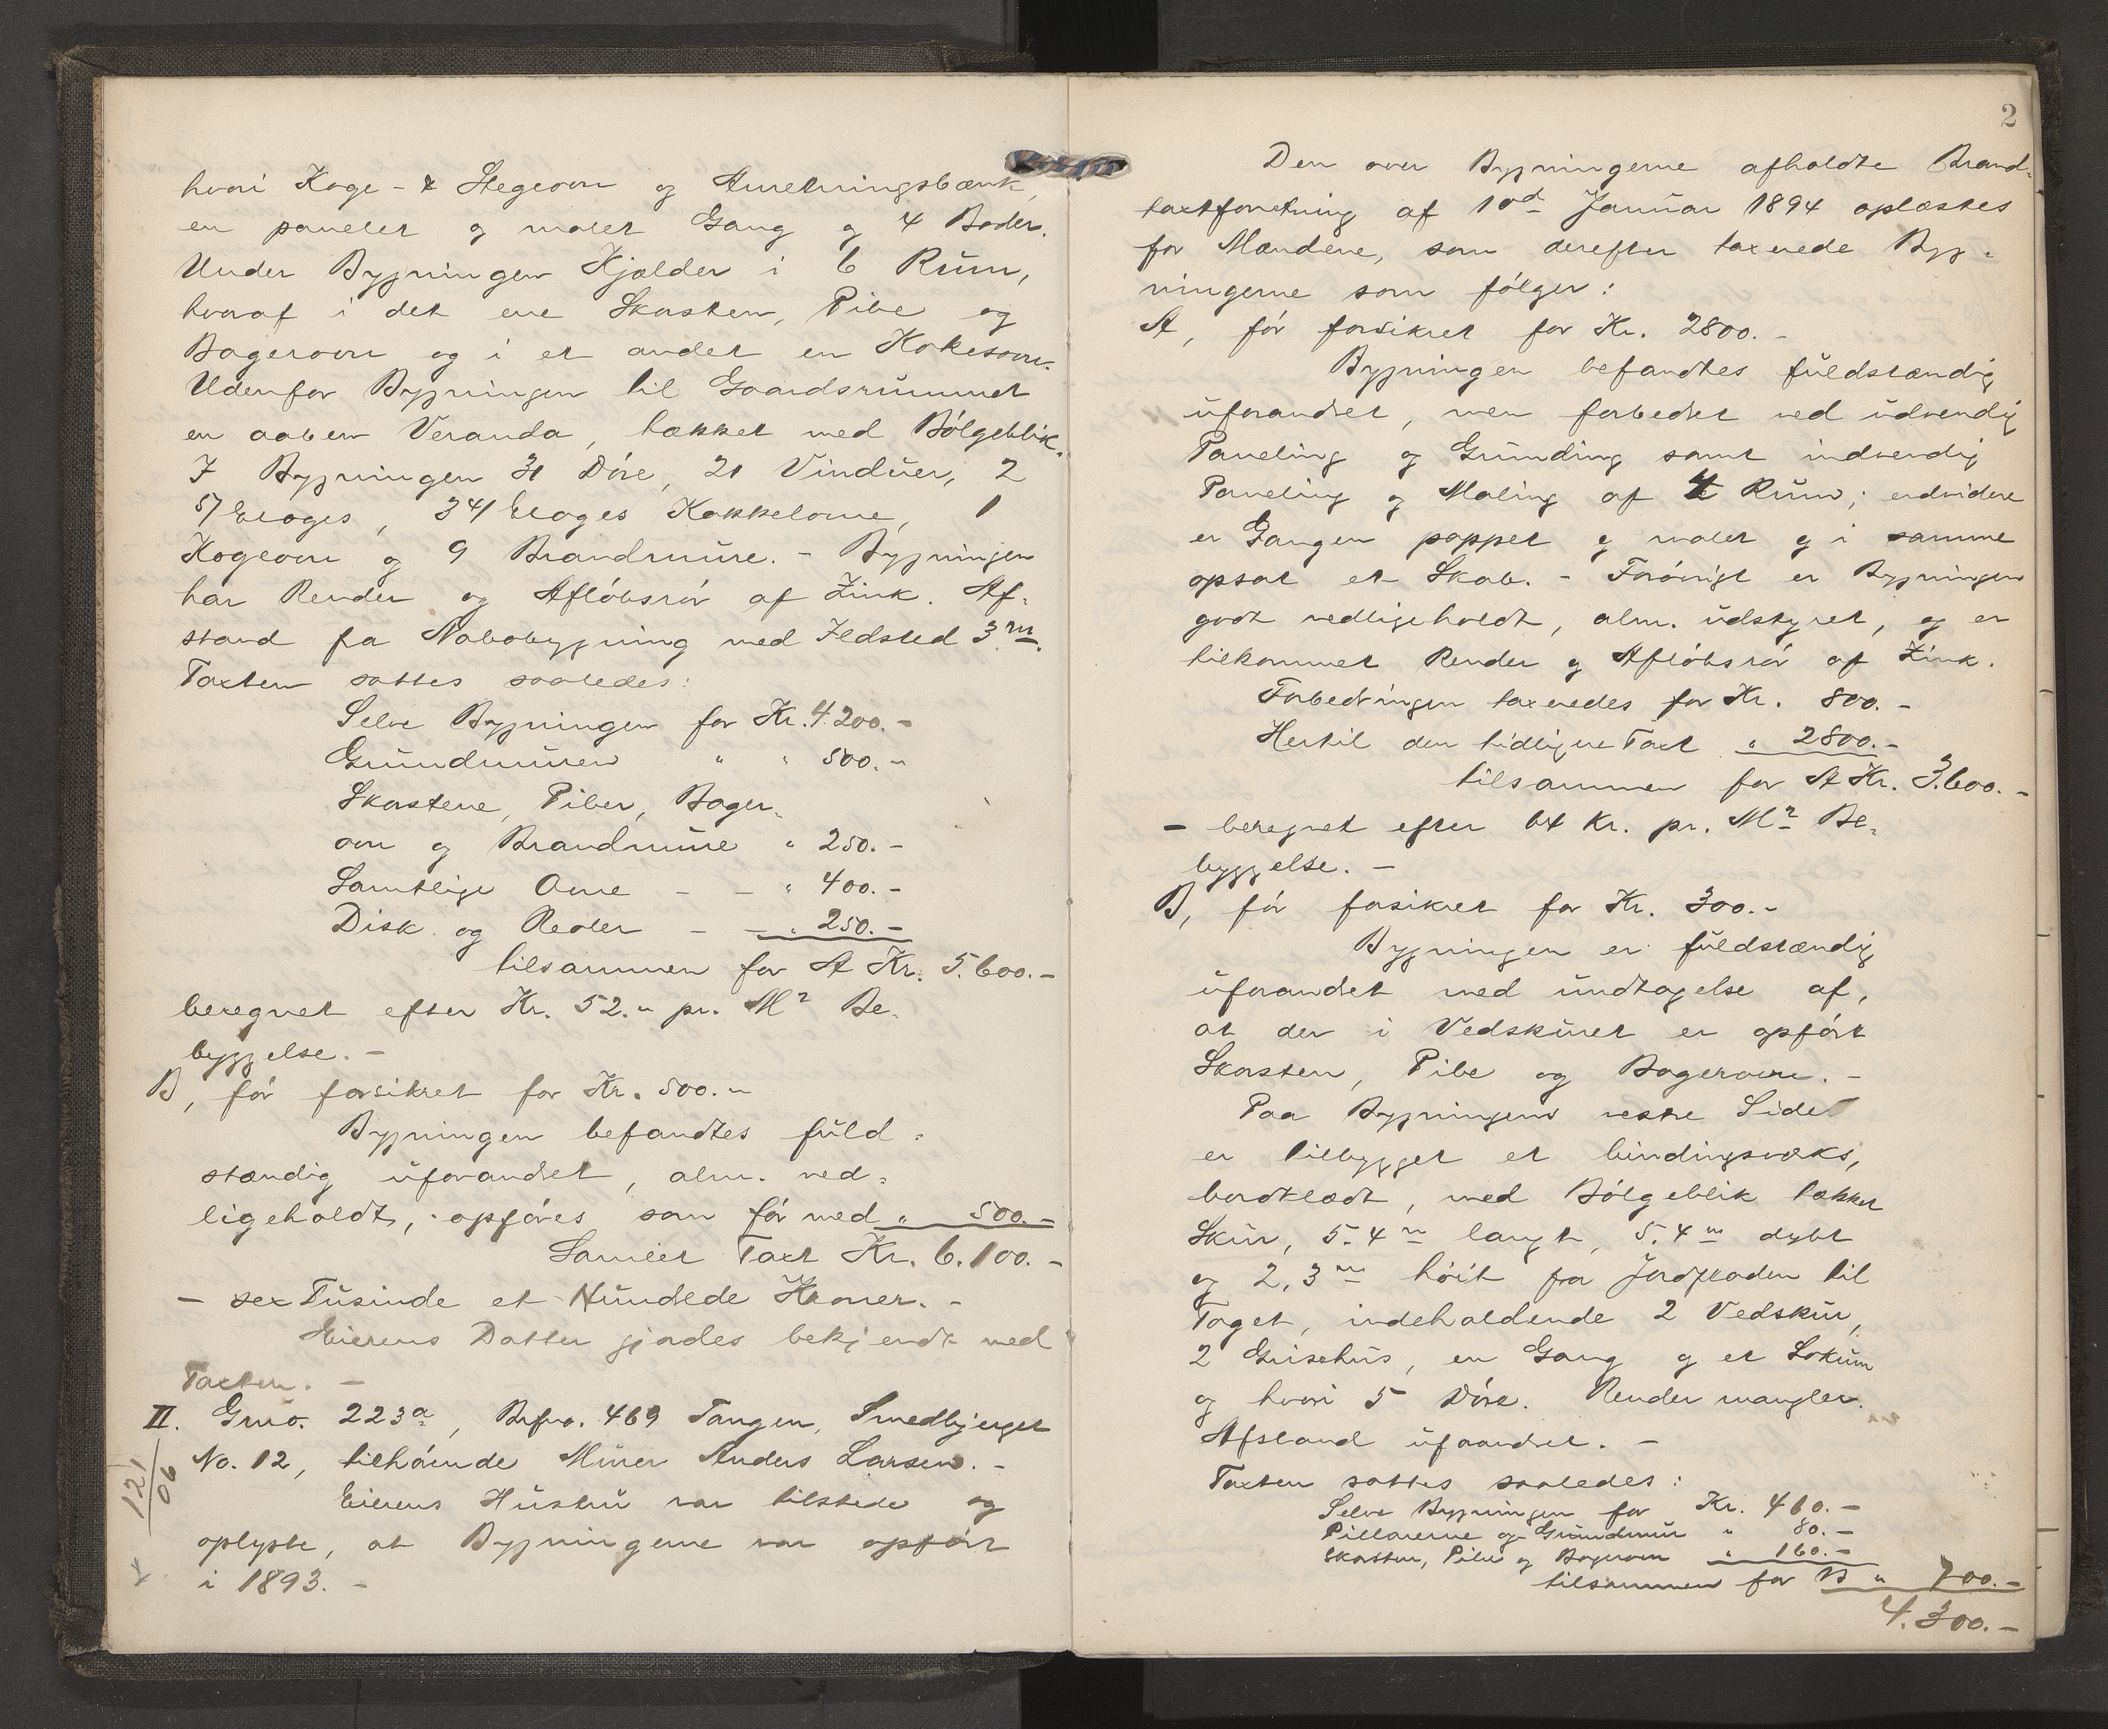 hvori Koge- & Stegeovn og Anretningsbænk,
en panelet og malet Gang og 4 Boder.
Under Bygningen Kjælder i 6 Rum,
hvoraf i det ene Skorsten, Pibe og
Bagerovn og i et andet en Kokesovn.
Udenfor Bygningen til Gaardsrummet
en aaben Veranda, tækket med Bølgeblik.
I Bygningen 31 Døre, 21 Vinduer, 2
5/ Etages, 3 4/ Etages Kakkelovne, 1
Kogeovn og 9 Brandmure. - Bygningen
har Render og Afløbsrør af Zink. Af-
stand fra Nabobygning med Ildsted 3 m.
Taxten sattes saaledes:
Selve Bygningen for Kr. 4.200.-
Grundmuren " " 500.-
Skorstene, Piber, Bager-
ovn og Brandmure " 250.-
Samtlige Ovne - - " 400.-
Disk og Reoler - - " 250.-
tilsammen for A Kr. 5.600.-
beregnet efter Kr. 52.- pr. M² Be-
byggelse. -
B, før forsikret for Kr. 500.-
Bygningen befandtes fuld-
stændig uforandret, alm. ved-
ligeholdt, opføres som før med " 500.-
Samlet Taxt Kr. 6.100.-
- sex Tusinde et Hundrede Kroner. -
Eierens Datter gjordes bekjendt med
Taxten. -
II. Grno. 223a, Brfno. 469 Tangen, Smedbjerget
No. 12, tilhørende Murer Anders Larsen. -
121/06
Eierens Hustru var tilstede og
oplyste, at Bygningerne var opført
i 1893. -
2
Den over Bygningerne afholdte Brand-
taxtforretning af 10d Januar 1894 oplæstes
for Mændene, som derefter taxerede Byg-
ningerne som følger:
A, før forsikret for Kr. 2800.-
Bygningen befandtes fuldstændig
uforandret, men forbedret ved udvendig
Paneling og Grunding samt indvendig
Paneling og Maling af 4 Rum; endvidere
er Gangen pappet og malet og i samme
opsat et Skab. - Forøvrigt er Bygningen
godt vedligeholdt, alm. udstyret, og er
tilkommet Render og Afløbsrør af Zink.
Forbedringen taxeredes for Kr. 800.-
Hertil den tidligere Taxt " 2800.-
tilsammen for A Kr. 3.600.-
- beregnet efter 64 Kr. pr. M² Be-
byggelse. -
B, før forsikret for Kr. 300.-
Bygningen er fuldstændig
uforandret med undtagelse af,
at der i Vedskuret er opført
Skorsten, Pibe og Bagerovn. -
Paa Bygningens vestre Side
er tilbygget et bindingsværks,
bordklædt, med Bølgeblik tækket
Skur, 5.4 m langt, 5.4 m dybt
og 2,3 m høit fra Jordfladen til
Taget, indeholdende 2 Vedskur,
2 Grisehus, en Gang og et Lokum
og hvori 5 Døre. Render mangler.
Afstand uforandret. -
Taxten sattes saaledes:
Selve Bygningen for Kr. 460.-
Pillarerne og Grundmur " 80.-
Skorsten, Pibe og Bagerovn " 160.-
tilsammen for B " 700.-
4.300.-